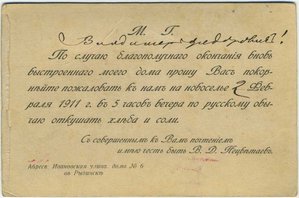 М. Г.
Владимир Федорович!
По случаю благополучнаго окончанія вновь
выстроеннаго моего дома прошу Васъ покор-
нѣйше пожаловать къ намъ на новоселье 2 Фе-
враля 1911 г. въ 5 часовъ вечера по русскому обы-
чаю откушать хлѣба и соли.
Съ совершеннымъ къ Вамъ почтеніемъ
имѣю честь быть В. Д.
Адресъ: Ивановская улица, домъ № 6
въ Рыбинскѣ